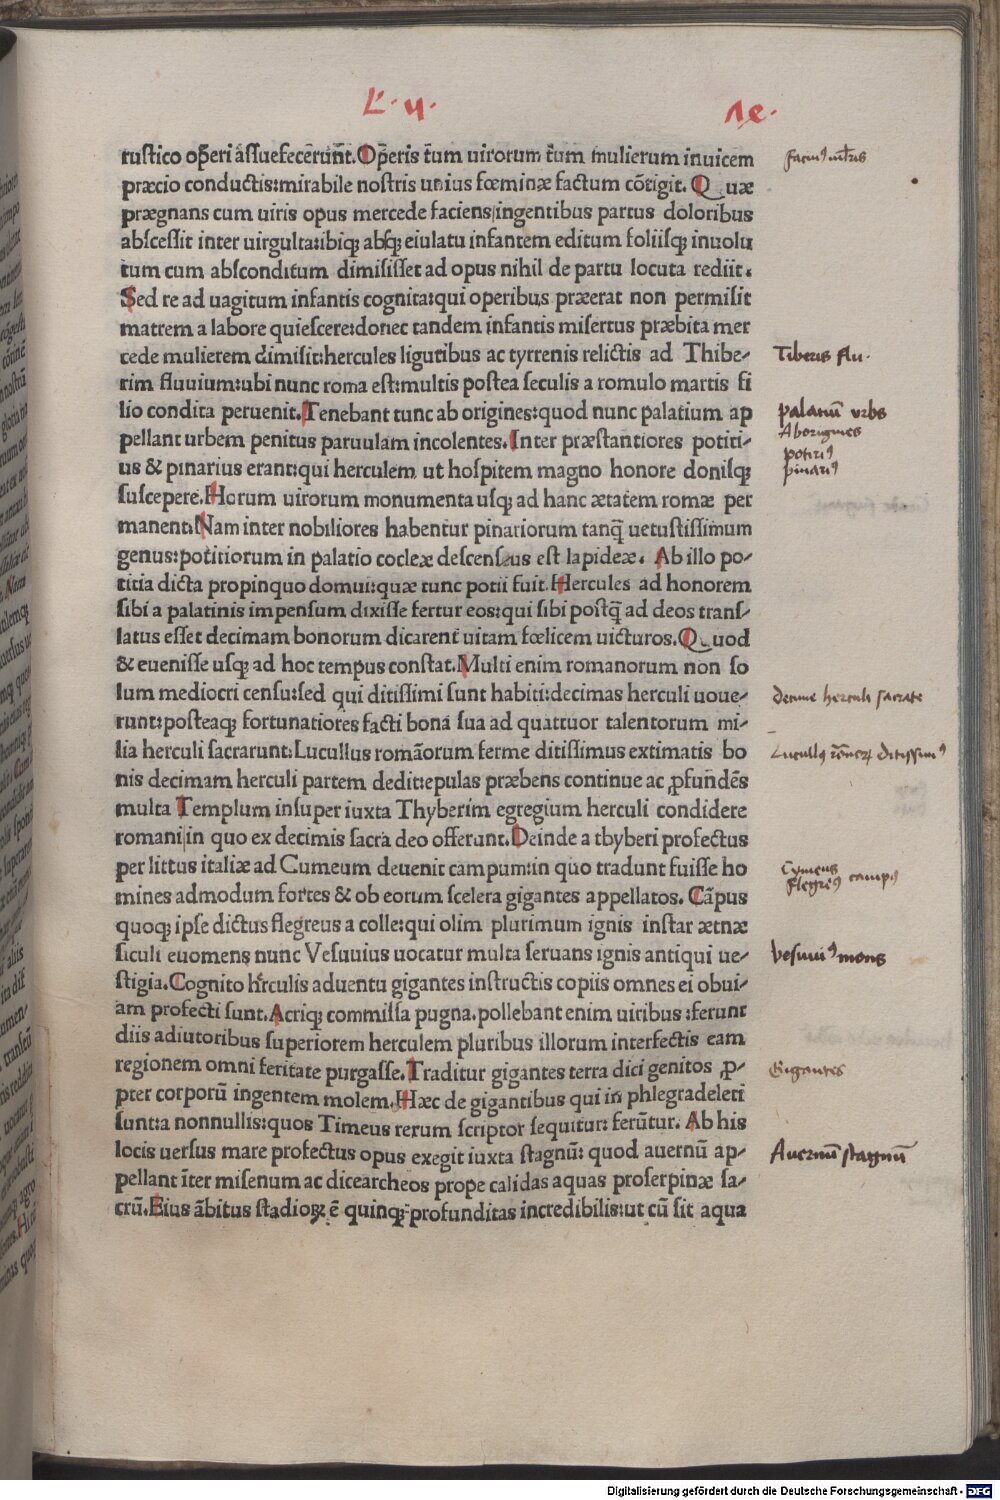 L. 4.
rustico oꝑeri assuefeceru̅nt. Oꝑeris tum uirorum tum mulierum inuicem
facin9 m̅lr̅is
præcio conductis: mirabile nostris unius fœminæ factum cōtigit. Quæ
prægnans cum uiris opus mercede faciens/ingentibus partus doloribus
abscessit inter uirgulta: ibiq; absq; eiulatu infantem editum foliisq; inuolu
tum cum absconditum dimisisset ad opus nihil de partu locuta rediit.
Sed re ad uagitum infantis cognita: qui operibus præerat non permisit
matrem a labore quiescere: donec tandem infantis misertus præbita mer
cede mulierem dimisit: hercules liguribus ac tyrrenis relictis ad Thibe-
Tiberis flu.
rim fluuium: ubi nunc roma est: multis postea seculis a romulo martis fi
lio condita peruenit. Tenebant tunc ab origines: quod nunc palatium ap
palatiū vrbs
pellant urbem penitus paruulam incolentes. Inter præstantiores potiti-
Aborigines
us & pinarius erant: qui herculem ut hospitem magno honore donisq;
potiti9
pinari9
suscepere. Horum uirorum monumenta usq; ad hanc ætatem romæ per
manent: Nam inter nobiliores habentur pinariorum tanq̄ uetustissimum
genus: potitiorum in palatio cocleæ descensus est lapideæ. Ab illo po-
titia dicta propinquo domui: quæ tunc potii fuit. Hercules ad honorem
sibi a palatinis impensum dixisse fertur eos: qui sibi postq̄ ad deos trans-
latus esset decimam bonorum dicarent uitam fœlicem uicturos. Quod
& euenisse usq; ad hoc tempus constat. Multi enim romanorum non so
lum mediocri censu: sed qui ditissimi sunt habiti: decimas herculi uoue-
decime herculi sacrate
runt: posteaq; fortunatiores facti bona sua ad quattuor talentorum mi-
lia herculi sacrarunt: Lucullus romāorum ferme ditissimus extimatis bo
Lucullus ditissim9
nis decimam herculi partem dedit: epulas præbens continue ac ꝓfundēs
multa Templum insuper iuxta Thyberim egregium herculi condidere
romani/in quo ex decimis sacra deo offerunt. Deinde a thyberi profectus
per littus italiæ ad Cumeum deuenit campum: in quo tradunt fuisse ho
Cymeus
mines admodum fortes & ob eorum scelera gigantes appellatos. Cāpus
Flegre9 camp9
quoq; ipse dictus flegreus a colle: qui olim plurimum ignis instar ætnæ
siculi euomens nunc Vesuuius uocatur multa seruans ignis antiqui ue-
Vesuui9 mons
stigia. Cognito hr̄culis aduentu gigantes instructis copiis omnes ei obui-
am profecti sunt. Acriq; commissa pugna. pollebant enim uiribus: ferunt
diis adiutoribus superiorem herculem pluribus illorum interfectis eam
regionem omni feritate purgasse. Traditur gigantes terra dici genitos ꝓ-
Gigantes
pter corporū ingentem molem. Hæc de gigantibus qui in phlegradeleti
sunt: a nonnullis: quos Timeus rerum scriptor sequitur: ferūtur. Ab his
locis uersus mare profectus opus exegit iuxta stagnū: quod auernū ap-
Auernū stagnū
pellant īter misenum ac dicearcheos prope calidas aquas proserpinæ sa-
crū. Eius ābitus stadioꝝ ē quinq; profunditas incredibilis: ut cū sit aqua
Digitalisierung gefördert durch die Deutsche Forschungsgemeinschaft - DFG